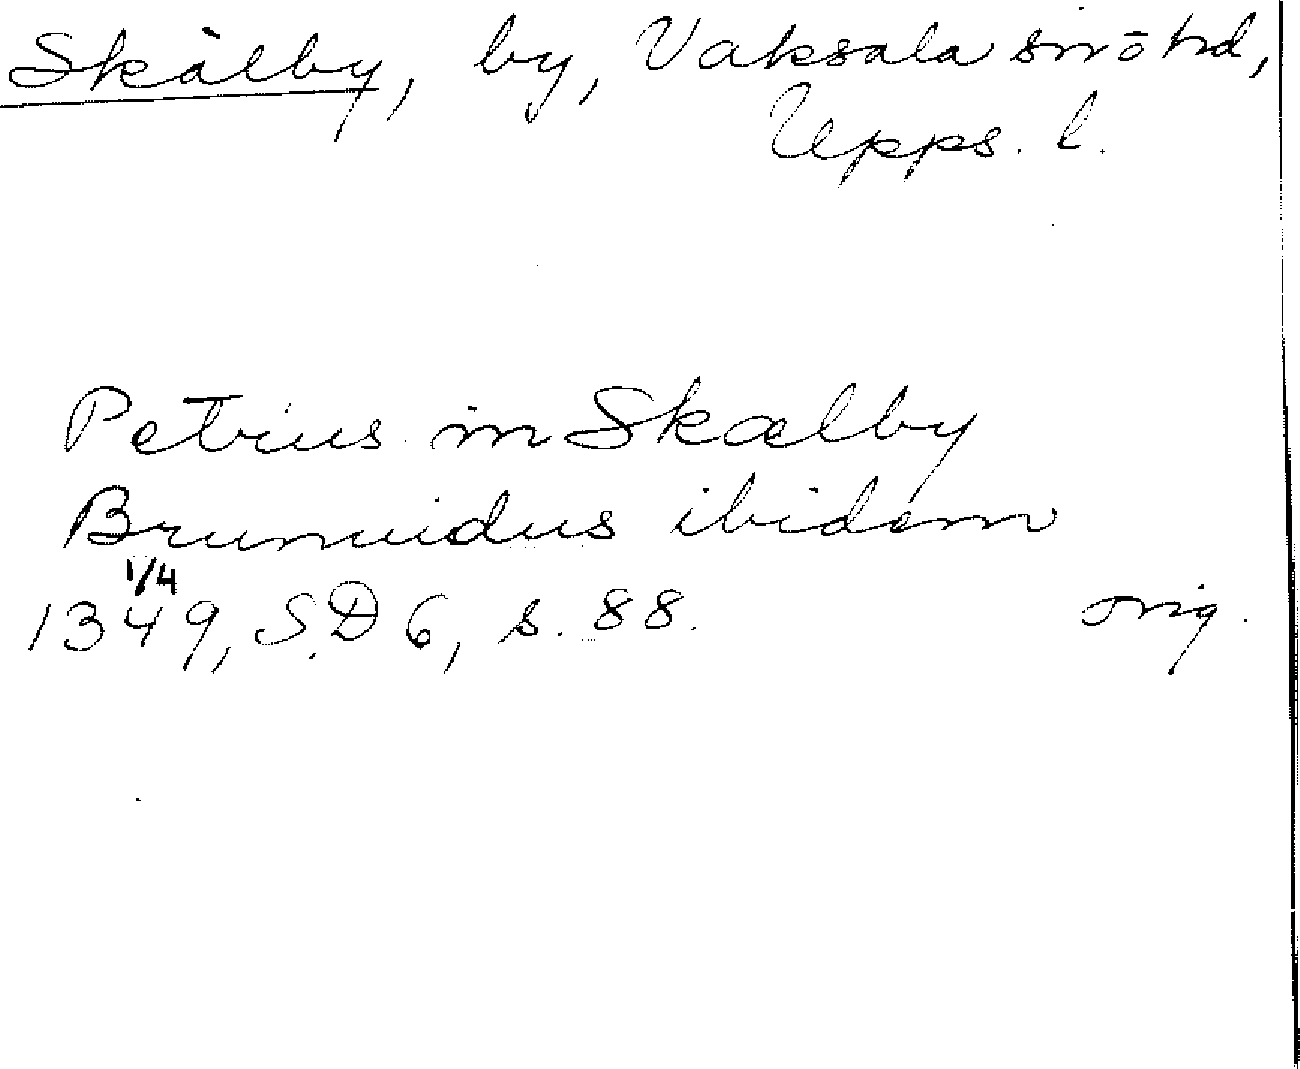 Skälby, by, Vaksala sn o hd,
Upps. l.
Petrus in Skælby
Brunnidus ibidem
1/4
1349, SD 6, s. 88. orig.